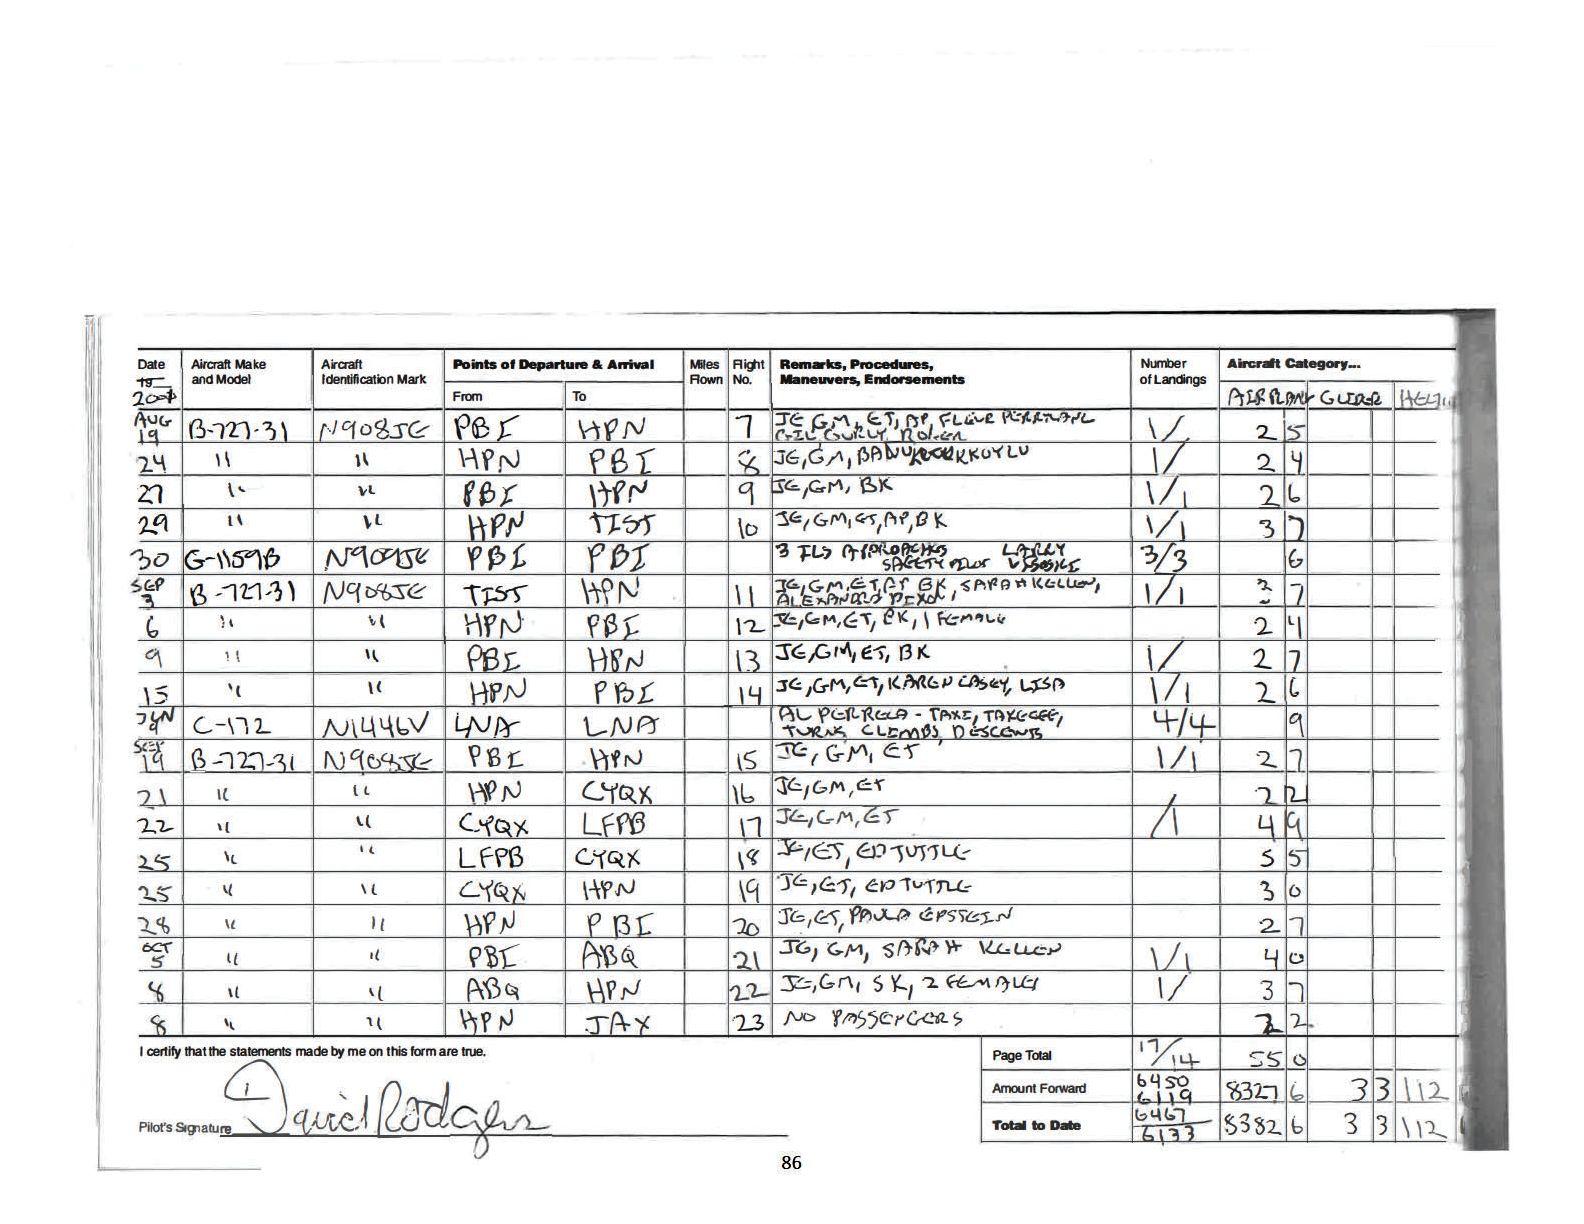 Date Aircraft Make Aircraft Points of Departure & Arrival Miles Flight Remarks, Procedures, Number Aircraft Category...
19 and Model Identification Mark Flown No. Maneuvers, Endorsements of Landings
2001 From To AIRPLANE GLIDER
AUG 19 B-727-31 N908JE PBI HPN 7 JE, GM, ET, AP, FLEUR PERRY 1/ 2 5
24 " " HPN PBI 8 JE, GM, BANU 1/ 2 4
27 " " PBI HPN 9 JE, GM, BK 1/1 2 6
29 " " HPN TIST 10 JE, GM, ET, AP, BK 1/1 3 7
30 G-1159B N909JE PBI PBI 3 ILS APPROACHES LARRY 3/3 6
SAFETY PILOT VISOSKI
SEP 3 B-727-31 N908JE TIST HPN 11 JE, GM, ET, AP, BK, SARAH KELLEN, 1/1 3 7
ALEXANDRA DIXON
6 " " HPN PBI 12 JE, GM, ET, BK, 1 FEMALE 2 4
9 " " PBI HPN 13 JE, GM, ET, BK 1/ 2 7
15 " " HPN PBI 14 JE, GM, ET, KAREN CASEY, LISA 1/1 2 6
JUN 9 C-172 N1446V LNA LNA AL - TAXI, TAKEOFF, 4/4 9
TURNS, CLIMBS, DESCENTS
SEP 19 B-727-31 N908JE PBI HPN 15 JE, GM, ET 1/1 2 7
21 " " HPN CYQX 16 JE, GM, ET 2 2
22 " " CYQX LFPB 17 JE, GM, ET /1 4 9
25 " " LFPB CYQX 18 JE, ET, ED TUTTLE 5 5
25 " " CYQX HPN 19 JE, ET, ED TUTTLE 3 0
28 " " HPN PBI 20 JE, ET, PAULA EPSTEIN 2 7
OCT 5 " " PBI ABQ 21 JE, GM, SARAH KELLEN 1/1 4 0
8 " " ABQ HPN 22 JE, GM, SK, 2 FEMALES 1/ 3 7
8 " " HPN JAX 23 NO PASSENGERS 2 2
I certify that the statements made by me on this form are true. Page Total 17/14 55 0
Amount Forward 6450 6119 8327 6 3 3 112
Pilot's Signature David Rodgers Total to Date 6467 6133 8382 6 3 3 112
86